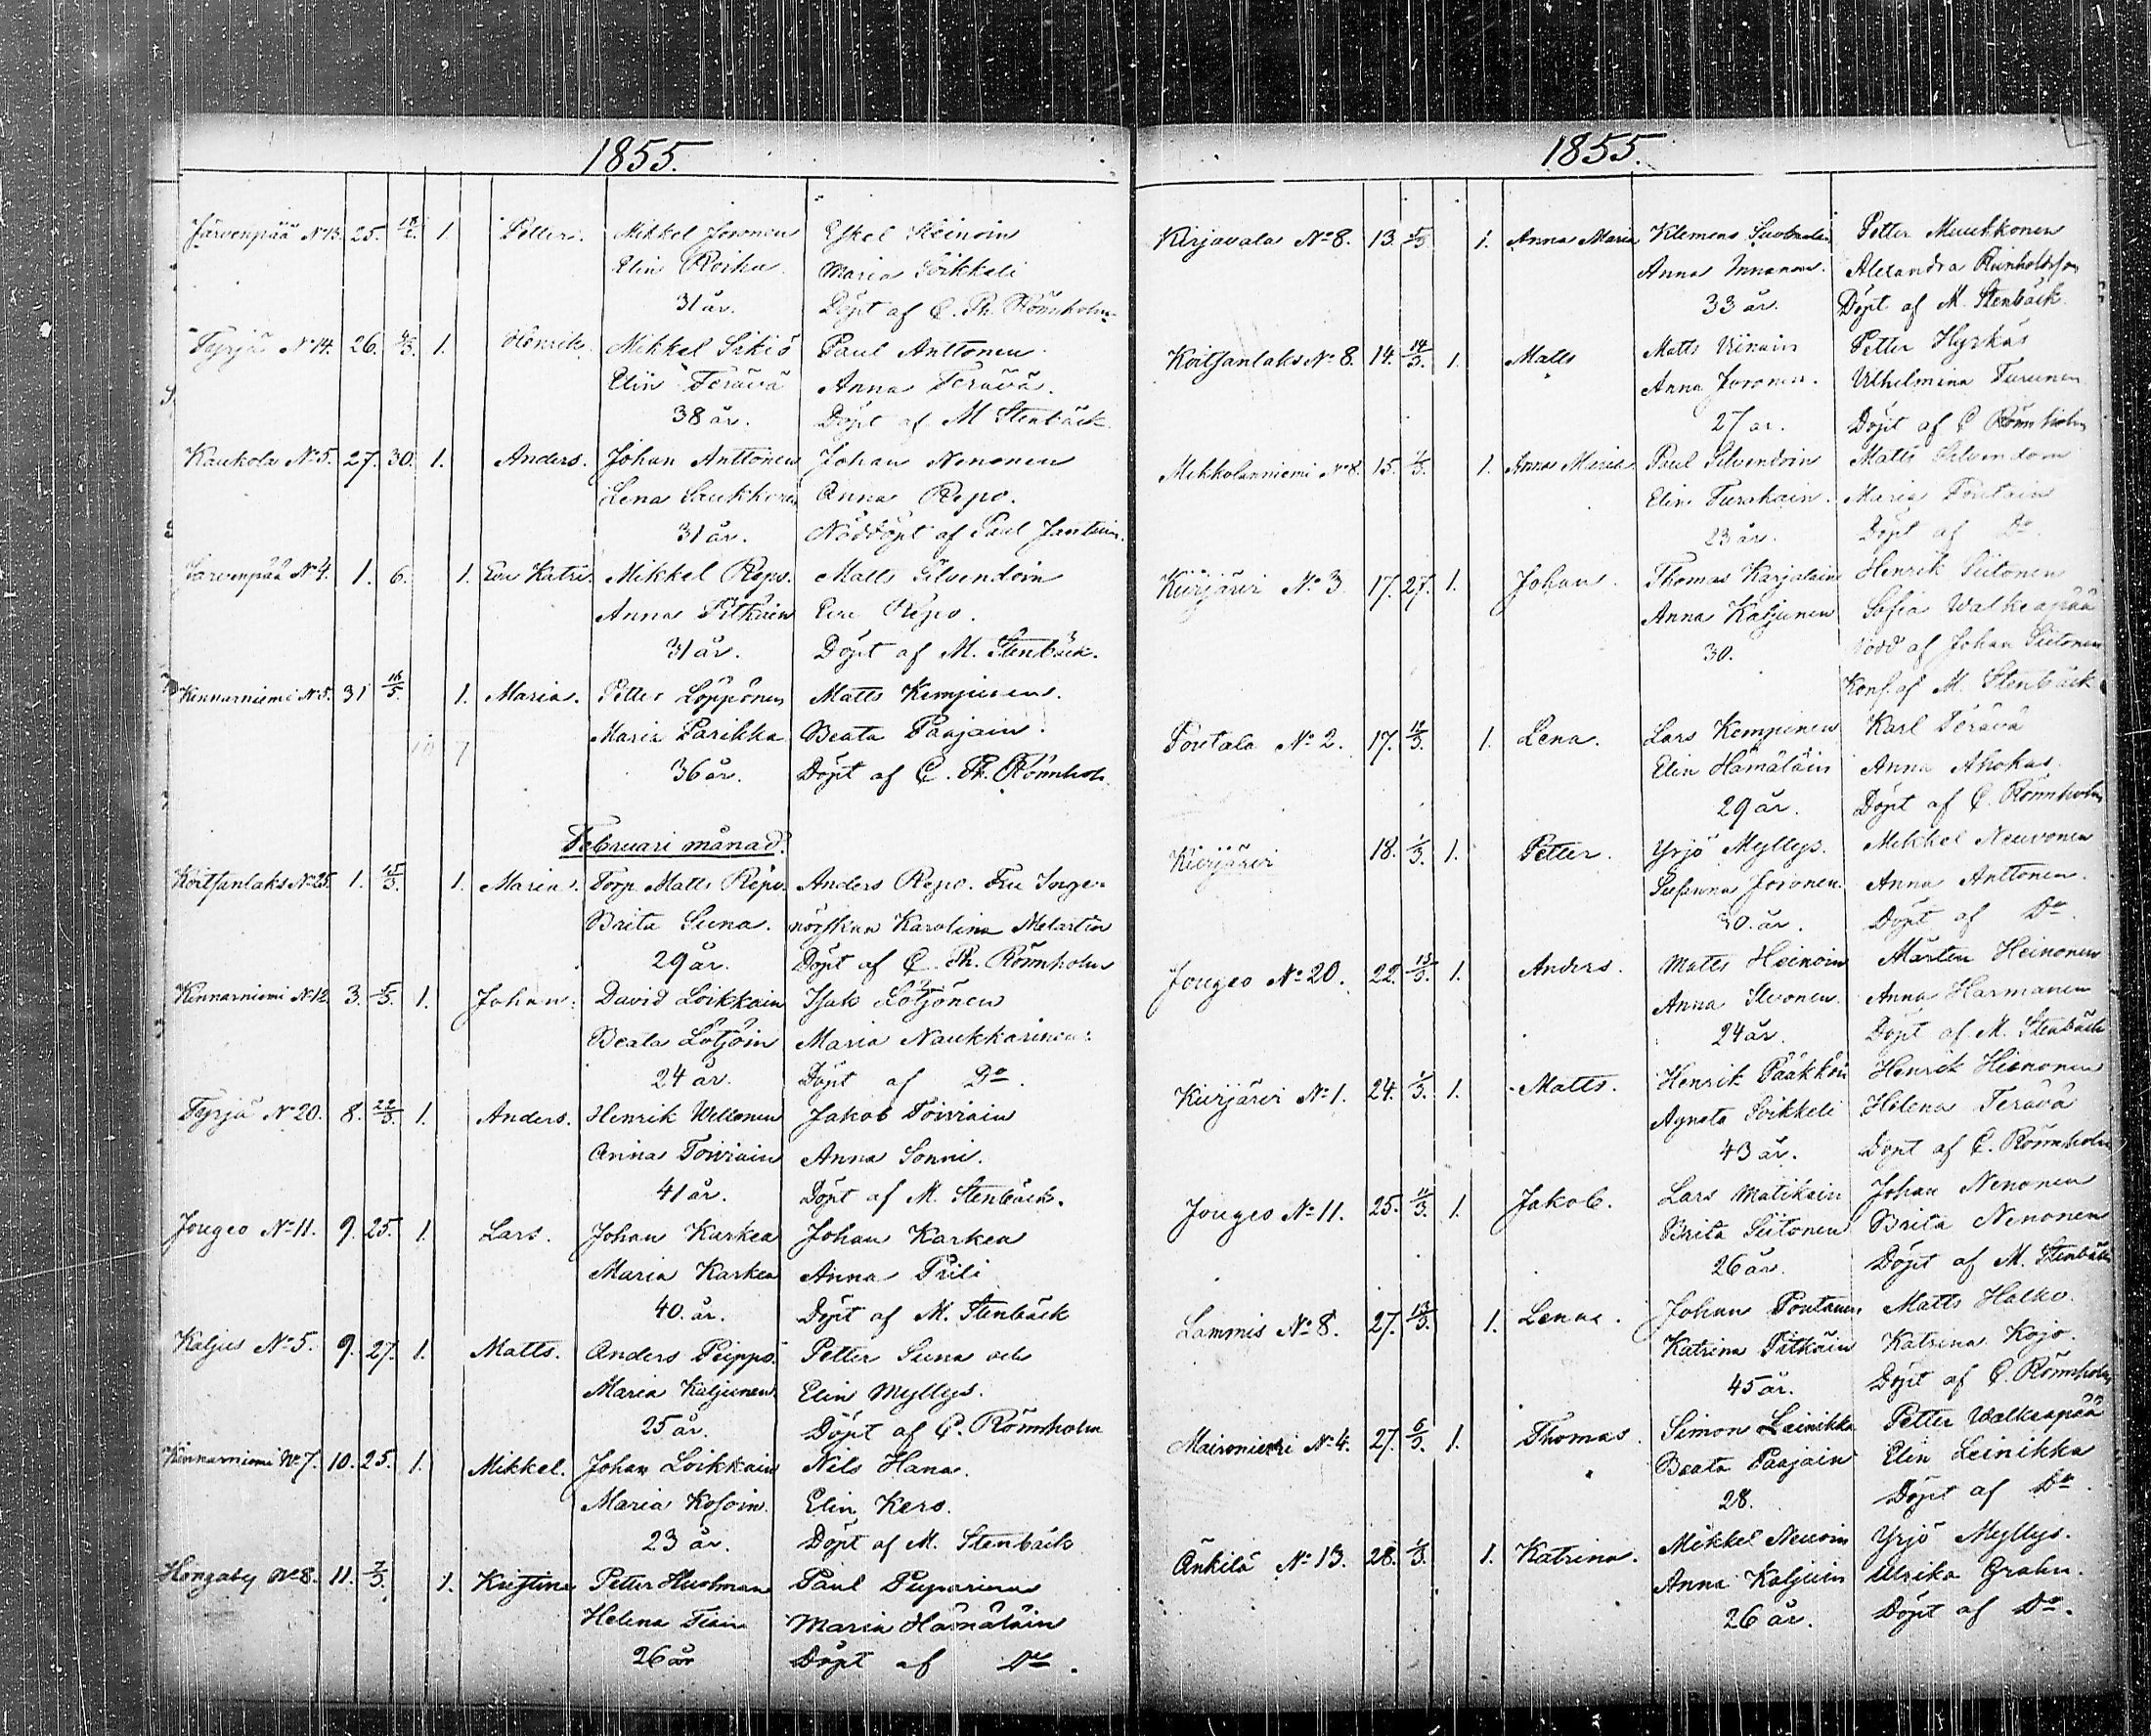 1855.
Järvenpää No 13. 25. 18/2. 1. Petter. Mikkel Joronen Eskel Heinoin
Elin Roiha Maria Soikkeli
31 år. Döpt af C. Th. Rönnholm
Tyrjä No 14. 26. 4/3. 1. Henrik. Mikkel Sikiö Paul Anttonen
Elin Terävä Anna Terävä.
38 år. Döpt af M Stenbäck
Kaukola No 5. 27. 30. 1. Anders. Johan Anttonen Johan Nenonen
Lena Saukkonen Anna Repo.
31 år. Nöddöpt af Paul Jantuin.
Järvenpää No 4. 1. 6. 1. Eva Katri. Mikkel Repo. Matts Silvendoin
Anna Pitkäin Eva Repo.
31 år. Döpt af M. Stenbäck.
Kinnarniemi No 5. 31 16/5. 1. Maria. Petter Löppönen Matts Kempinen.
Maria Parikka Beata Paajain.
36 år. Döpt af C. Th. Rönnholm
Februari månad.
Koitsanlaks No 25. 1. 15/3. 1. Maria. Torp. Matts Repo. Anders Repo. Fru Inge-
Brita Suna. nörskan Karolina Melartin
29 år. Döpt af C. Th. Rönnholm
Kinnarniemi No 12. 3. 5/3. 1. Johan. David Loikkain Isak Lötjönen
Beata Lötjöin Maria Naukkarinen.
24 år. Döpt af Do.
Tyrjä No 20. 8. 22/3. 1. Anders. Henrik Wellonen Jakob Toiviain
Anna Toiviain Anna Sonni.
41 år. Döpt af M. Stenbäck.
Jougeo No 11. 9. 25. 1. Lars. Johan Karkea Johan Karkea
Maria Karkea Anna Prili
40. år. Döpt af M. Stenbäck
Kaljus No 5. 9. 27. 1. Matts. Anders Peippo Petter Suna och
Maria Kaljunen Elin Myllys.
25 år. Döpt af C. Rönnholm
Kinnarniemi No 7. 10. 25. 1. Mikkel. Johan Loikkain Nils Hana.
Maria Kosoin. Elin Kero.
23 år. Döpt af M. Stenbäck
Hongaby No 8. 11. 7/3. 1. Kristina Petter Huolman Paul Puparinen
Helena Tiain Maria Hämäläin
26 år Döpt af Do.
1855.
Kirjavala No 8. 13. 1. Anna Maria Klemens Suobmelin Petter Muukkonen
Anna Innanen. Alexandra Reinholdsson
33 år. Döpt af M. Stenbäck.
Koitsanlaks No 8. 14. 14/3. 1. Matts Matts Viinain Petter Hyrkäs
Anna Joronen. Wilhelmina Turunen
27 år. Döpt af C Rönnholm
Mikkolanniemi No 8. 15. 1/3. 1. Anna Maria. Paul Silvendoin Matts Silvendoin
Elin Turchain. Maria Poutain
23 år. Döpt af Do.
Kiirjärvi No 3. 17. 27. 1. Johan. Thomas Karjalain Henrik Siitonen
Anna Kaljunen Sofia Walkeapää
30. Nödd af Johan Siitonen
Konf. af M. Stenbäck
Poutala No 2. 17. 12/3. 1. Lena. Lars Kempinen Karl Terävä
Elin Hämäläin Anna Ahokas.
29 år. Döpt af C. Rönnholm
Kiirjärvi 18. 1/3. 1. Petter. Yrjö Myllys. Mikkel Neuvonen
Susanna Joronen. Anna Anttonen.
30. år. Döpt af Do.
Jougeo No 20. 22. 13/3. 1. Anders. Matts Heinoin Mårten Heinonen
Anna Ilvonen. Anna Harmanen
24 år. Döpt af M. Stenbäck
Kiirjärvi No 1. 24. 1/3. 1. Matts. Henrik Pääkköin Henrik Hienonen
Agneta Soikkeli Helena Terävä
43 år. Döpt af C. Rönnholm
Jougeo No 11. 25. 11/3. 1. Jakob. Lars Matikain Johan Nenonen
Brita Siitonen Brita Nenonen
26 år. Döpt af M. Stenbäck
Lammis No 8. 27. 13/3. 1. Lena. Johan Poutanen Matts Halko.
Katrina Pitkäin Katrina Kojo.
45 år. Döpt af C. Rönnholm
Maironiemi No 4. 27. 6/3. 1. Thomas. Simon Leinikka Petter Walkeapää
Beata Paajain Elin Leinikka
28. Döpt af Do.
Änkilä No 13. 28. 1/3. 1. Katrina. Mikkel Neuvoin Yrjö Myllys.
Anna Kaljuin Ulrika Grahn.
26 år. Döpt af Do.